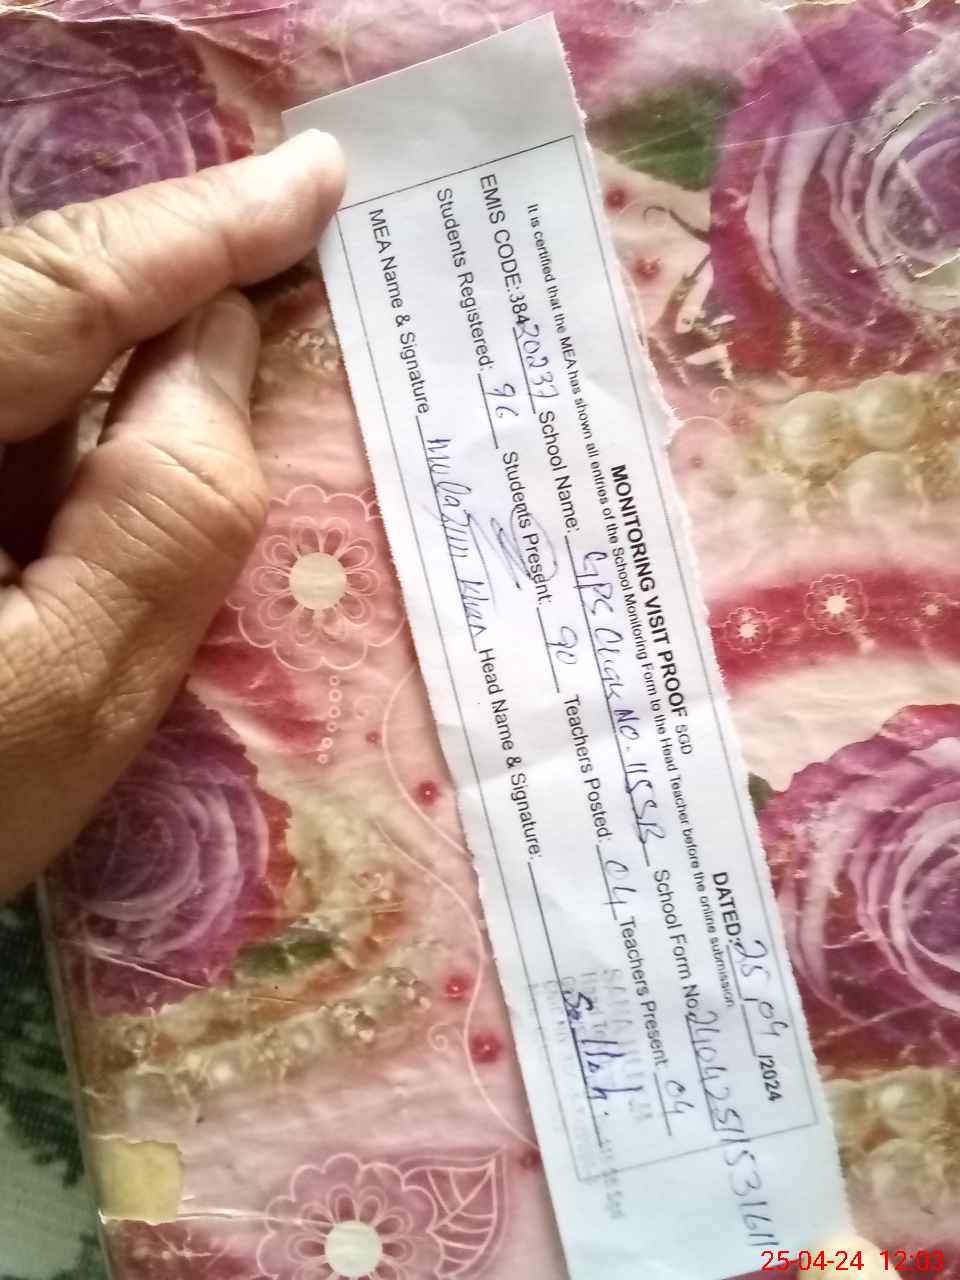 MONITORING VISIT PROOF SGD DATED: 25/04/2024
It is certified that the MEA has shown all entries of the School Monitoring Form to the Head Teacher before the online submission
EMIS CODE:38420237 School Name: GPS Chak NO. 11SSB School Form No. 24042511531611
Students Registered: 96 Students Present: 90 Teachers Posted: 04 Teachers Present: 04
MEA Name & Signature Mulazim Khan Head Name & Signature:
25-04-24 12:03